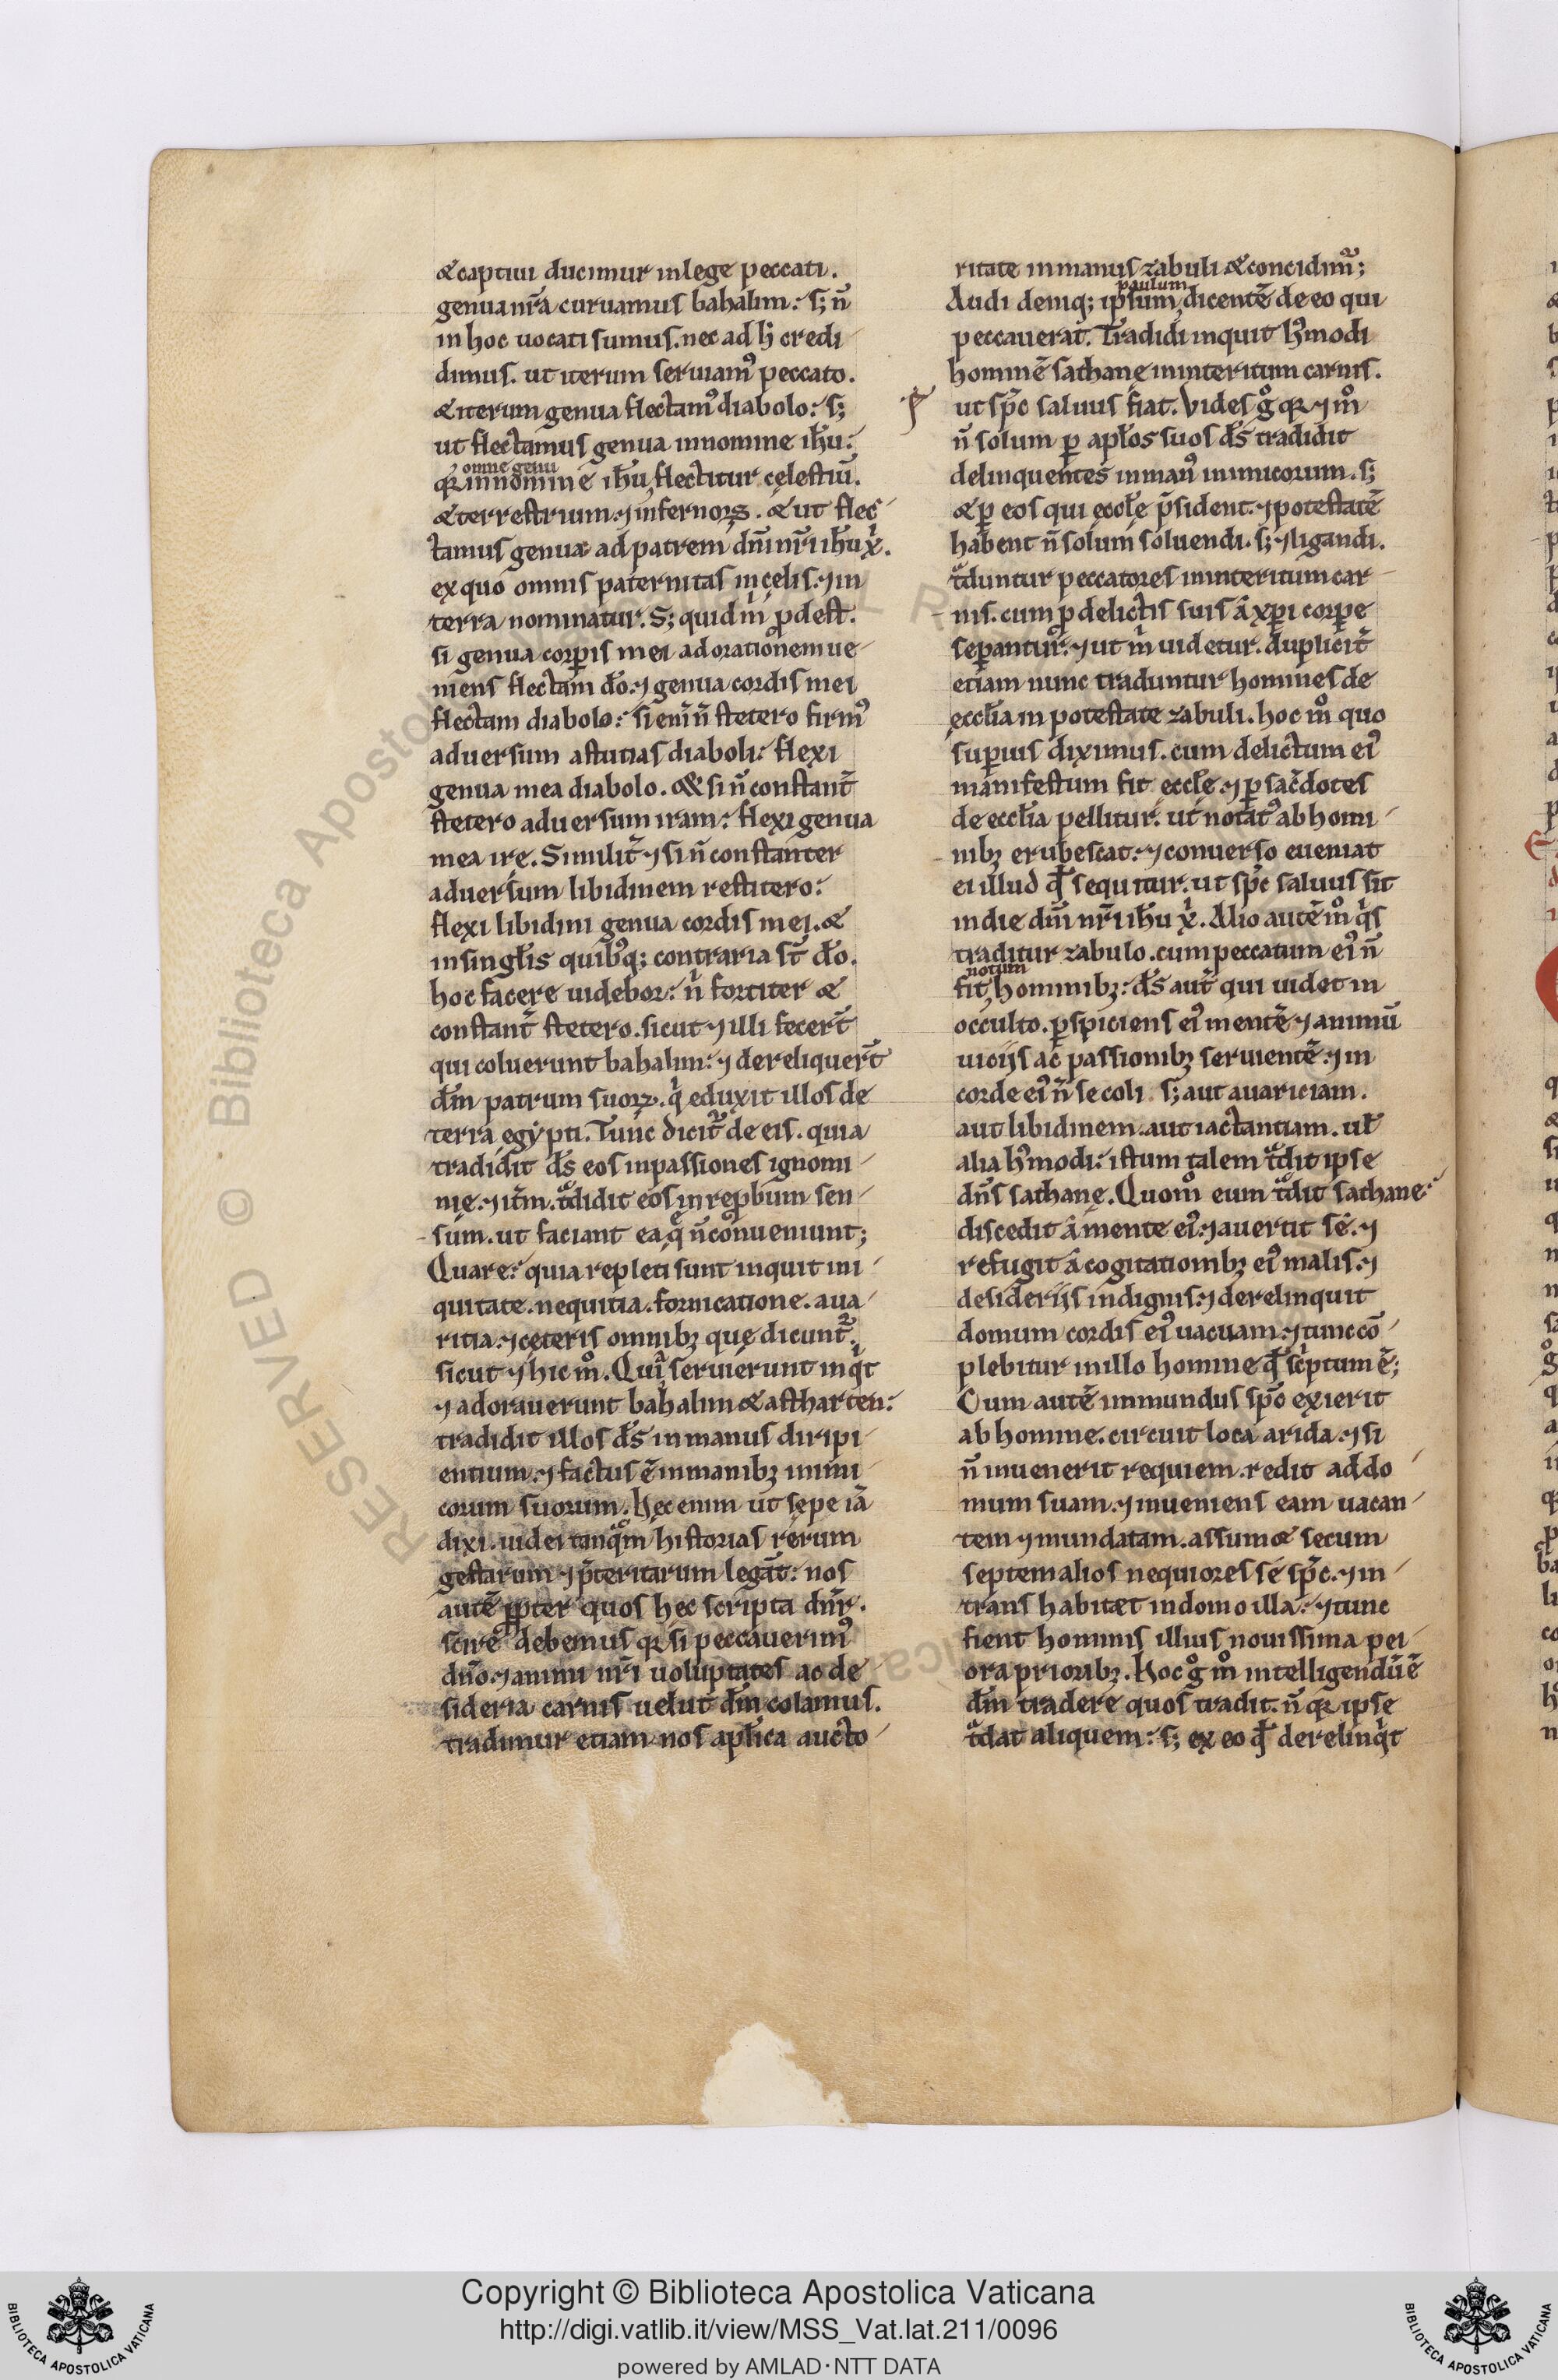 & captiui ducimur in lege peccati.
genua nr̃a curuamus bahalim: s; ñ
in hoc uocati sumus. nec ad h̾ credi
dimus. ut iterum seruiam᷒ peccato.
& iterum genua flectam᷒ diabolo: s;
ut flectamus genua in nomine ih̅u:
omne genu
qꝛ in nomine ih̅u, flectitur cęlestiũ.
& terrestrium. ⁊ infernoꝝ. & ut flec
tamus genua ad patrem dñi nr̃i ih̅u x̾.
ex quo omnis paternitas in cęlis. ⁊ in
terra nominatur. S; quid m̾ ꝓdest.
si genua corꝑis mei ad orationem ue
niens flectam do̅. ⁊ genua cordis mei
flectam diabolo: si eni̅ ñ stetero firm᷒
aduersum astutias diaboli: flexi
genua mea diabolo. & si ñ constant̾
stetero aduersum iram: flexi genua
mea irę. Similit̾ ⁊ si ñ constanter
aduersum libidinem restitero:
flexi libidini genua cordis mei. &
in singlis̅ quib᷒q; contraria st̅ do̅.
hoc facere uidebor: n̾ fortiter &
constant̾ stetero. sicut ⁊ illi fecer̃t
qui coluerunt bahalim: ⁊ dereliquer̃t
dm̅ patrum suoꝝ. q̾ eduxit illos de
terra egẏpti. Tunc dicit᷑ de eis. quia
tradidit ds̅ eos in passiones ignomi
nię. ⁊ it̾m. tᷓdidit eos in reꝓbum sen
sum. ut faciant ea, q̨̃ ñ conueniunt;
Quare: quia repleti sunt inquit ini
quitate. nequitia. fornicatione. aua
ritia. ⁊ cęteris omnibꝫ quę dicunt᷑.
sicut ⁊ hic m̊. Quiᷓ seruierunt inq̾t
⁊ adorauerunt bahalim & astharten:
tradidit illos ds̅ in manus diripi
entium. ⁊ factus ẽ in manibꝫ inimi
corum suorum. hęc enim ut sępe iã
dixi. iudei tanqᷓm historias rerum
gestarum ⁊ p̃teritarum legãt: nos
autẽ ꝓpter quos hec scripta dnr̃.
scire debemus qꝛ si peccauerim᷒
dño. ⁊ animi nr̃i uoluptates ac de
sideria carnis uelut dm̅ colamus.
tradimur etiam nos aplica̅ aucto
ritate in manus zabuli & concidim᷑;
paulum
Audi deniq; ipsum, dicentẽ de eo qui
peccauerat. Tradidi inquit h᷒modi
hominẽ sathanę in interitum carnis.
ut spc̅ saluus fiat. Vides g̊ qꝛ ⁊ m̊
ñ solum ꝑ aplos̅ suos ds̅ tradidit
delinquentes in man᷒ inimicorum. s;
& ꝑ eos qui eccle̅ p̃sident. ⁊ potestatẽ
habent ñ solum soluendi. s; ⁊ ligandi.
tᷓduntur peccatores in interitum car
nis. cum ꝓ delictis suis â xp̅i corꝑe
seꝑantur. ⁊ ut m̾ uidetur. duplicit̾
etiam nunc traduntur homines de
ecclia̅ in potestate zabuli. hoc m̊ quo
suꝑius diximus. cum delictum ei᷒
manifestum fit eccle̅. ⁊ ꝑ sac̾dotes
de ecclia̅ pellitur. ut notat᷒ ab homi
nibꝫ erubescat. ⁊ conuerso eueniat
ei illud qđ sequitur. ut spc̅ saluus sit
in die dñi nr̃i ih̅u x̾. Alio autẽ m̊ q̾s
traditur zabulo. cum peccatum ei᷒ ñ
notum
fit, hominibꝫ: ds̅ aut̾ qui uidet in
occulto. ꝑspiciens ei᷒ mentẽ ⁊ animũ
uicijs ac passionibꝫ seruientẽ. ⁊ in
corde ei᷒ ñ se coli. s; aut auariciam.
aut libidinem. aut iactantiam. ul̅
alia h᷒modi: istum talem tᷓdit ipse
dñs sathanę. Quom̊ eum tᷓdit sathanę:
discedit â mente ei᷒. ⁊ auertit se. ⁊
refugit â cogitationibꝫ ei᷒ malis. ⁊
desiderijs indignis. ⁊ derelinquit
domum cordis ei᷒ uacuam. ⁊ tunc cõ
plebitur in illo homine qđ sc̾ptum ẽ;
Cum autẽ immundus spc̅ exierit
ab homine. circuit loca arida. ⁊ si
ñ inuenerit requiem. redit ad do
mum suam. ⁊ inueniens eam uacan
tem ⁊ mundatam. assum& secum
septem alios nequiores se spc̅. ⁊ in
trans habitet in domo illa. ⁊ tunc
fient hominis illius nouissima pei
ora prioribꝫ. Hoc g̊ m̊ intelligendũ ẽ
dm̅ tradere quos tradit. ñ qꝛ ipse
tᷓdat aliquem: s; ex eo qđ derelinq̾t
Copyright © Biblioteca Apostolica Vaticana
http://digi.vatlib.it/view/MSS_Vat.lat.211/0096
powered by AMLAD·NTT DATA
BIBLIOTECA APOSTOLICA VATICANA
BIBLIOTECA APOSTOLICA VATICANA